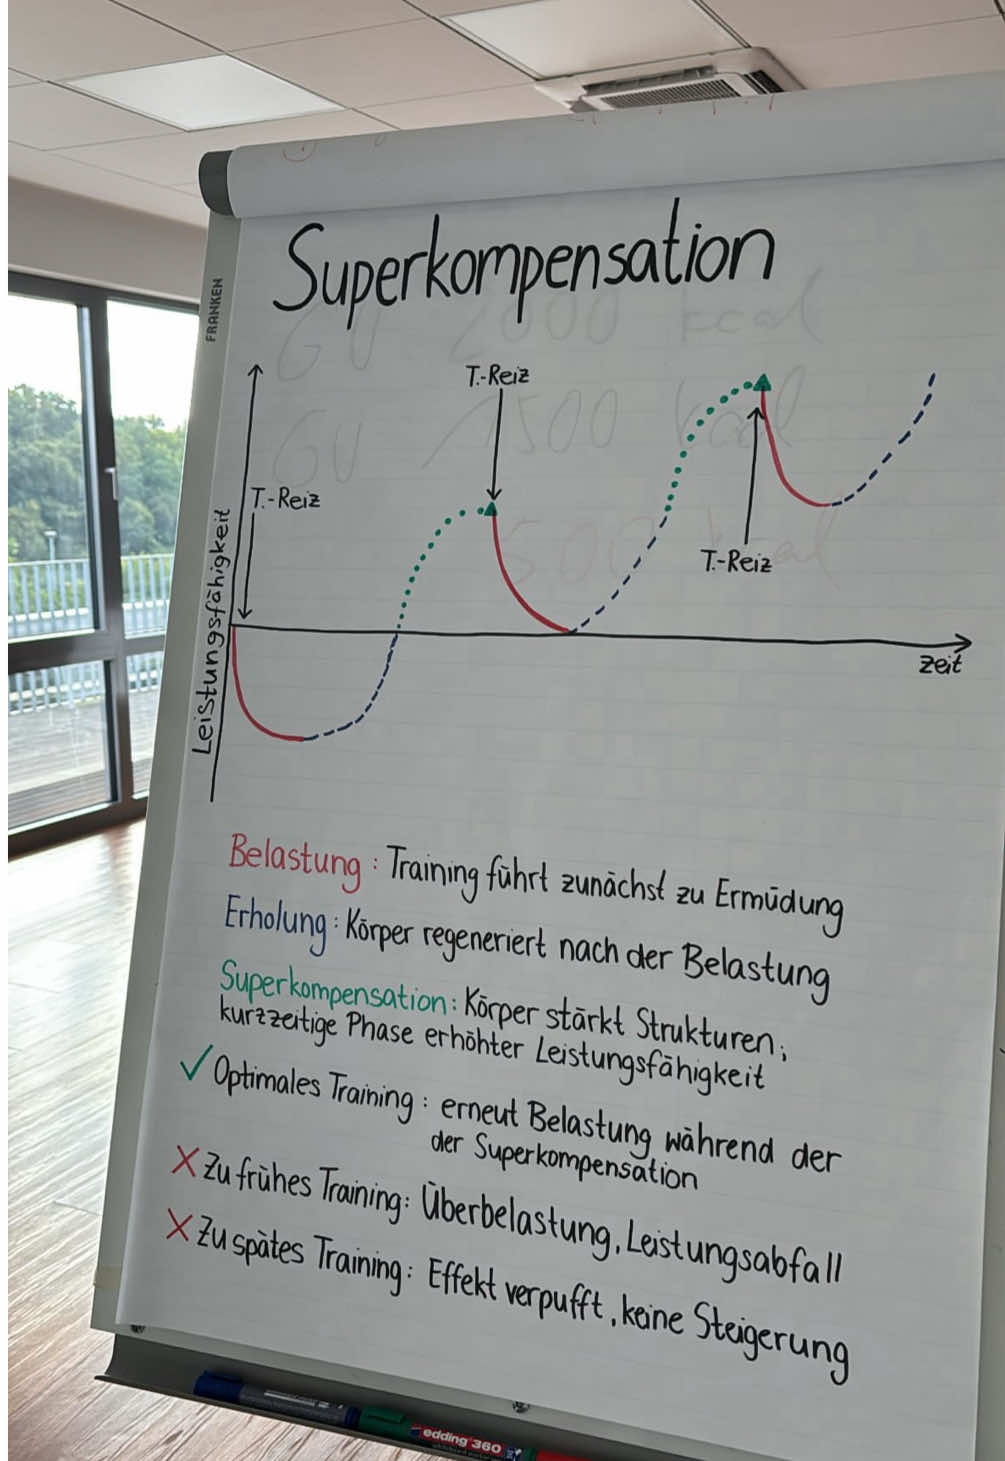 FRANKEN
Superkompensation
GU 2000 kcal
GU 1500 kcal
500 kcal
T.-Reiz
T.-Reiz
T.-Reiz
Leistungsfähigkeit
Zeit
Belastung: Training führt zunächst zu Ermüdung
Erholung: Körper regeneriert nach der Belastung
Superkompensation: Körper stärkt Strukturen;
kurzzeitige Phase erhöhter Leistungsfähigkeit
✓ Optimales Training: erneut Belastung während der
der Superkompensation
X Zu frühes Training: Überbelastung, Leistungsabfall
X Zu spätes Training: Effekt verpufft, keine Steigerung
edding 360